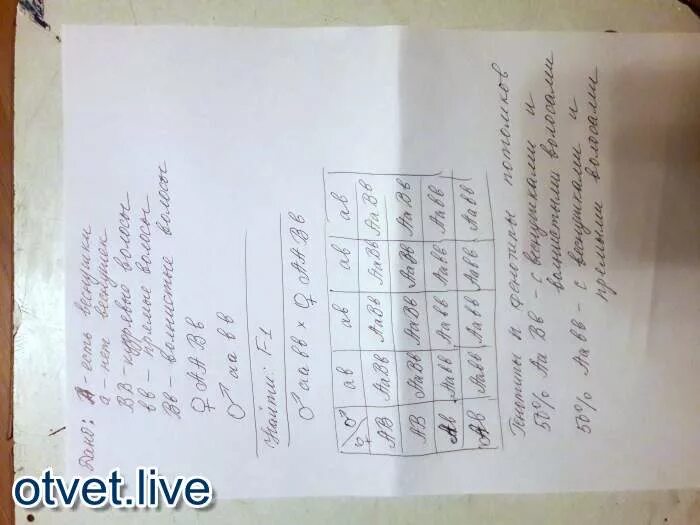 Дано: А - есть веснушки
а - нет веснушек
ВВ - кудрявые волосы
вв - прямые волосы
Вв - волнистые волосы
♀ ААВв
♂ аавв
Найти: F1
♂ аавв × ♀ ААВв
♀\♂ ав ав ав ав
АВ АаВв АаВв АаВв АаВв
АВ АаВв АаВв АаВв АаВв
Ав Аавв Аавв Аавв Аавв
Ав Аавв Аавв Аавв Аавв
Генотипы и фенотипы потомков
50% АаВв - с веснушками и
волнистыми волосами
50% Аавв - с веснушками и
прямыми волосами
otvet.live